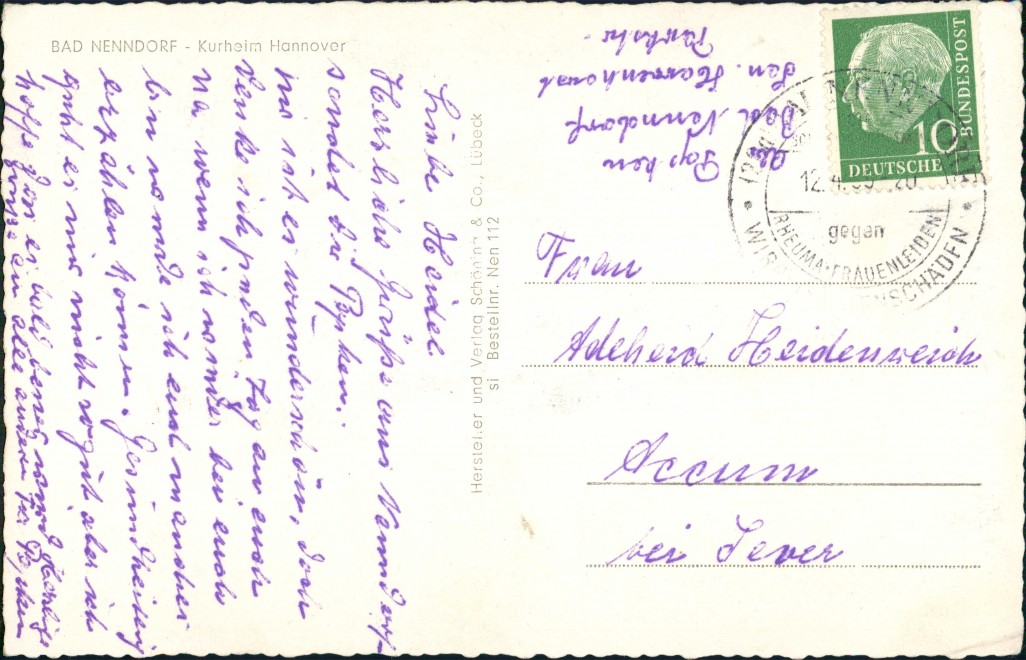 BAD NENNDORF - Kurheim Hannover
Liebe Heidel
Herzliche Grüße aus Nenndorf
sendet Dir Papken.
mir ist es wunderschön, doch
denke ich jeden Tag an euch
na wenn ich wieder bei euch
bin werde ich euch mancher
erzählen können. Gesundheitlig
geht es mir nicht so gut aber ich
hoffe das es bald besser wird Herzlige
Grüße an alle andern Fr Papken
Hersteller und Verlag Schöning & Co., Lübeck
si Bestellnr. Nen 112
Papken
Bad Nenndorf
Parkstr -
10
DEUTSCHE BUNDESPOST
12.4. 20
gegen
RHEUMA·FRAUENLEIDEN
Frau
Adeheid Heidenreich
Accum
bei Jever